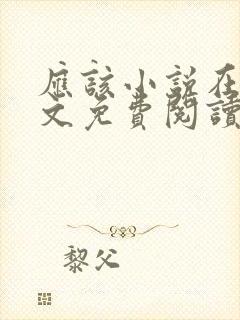 應該小說在
文免費閱讀
黎父